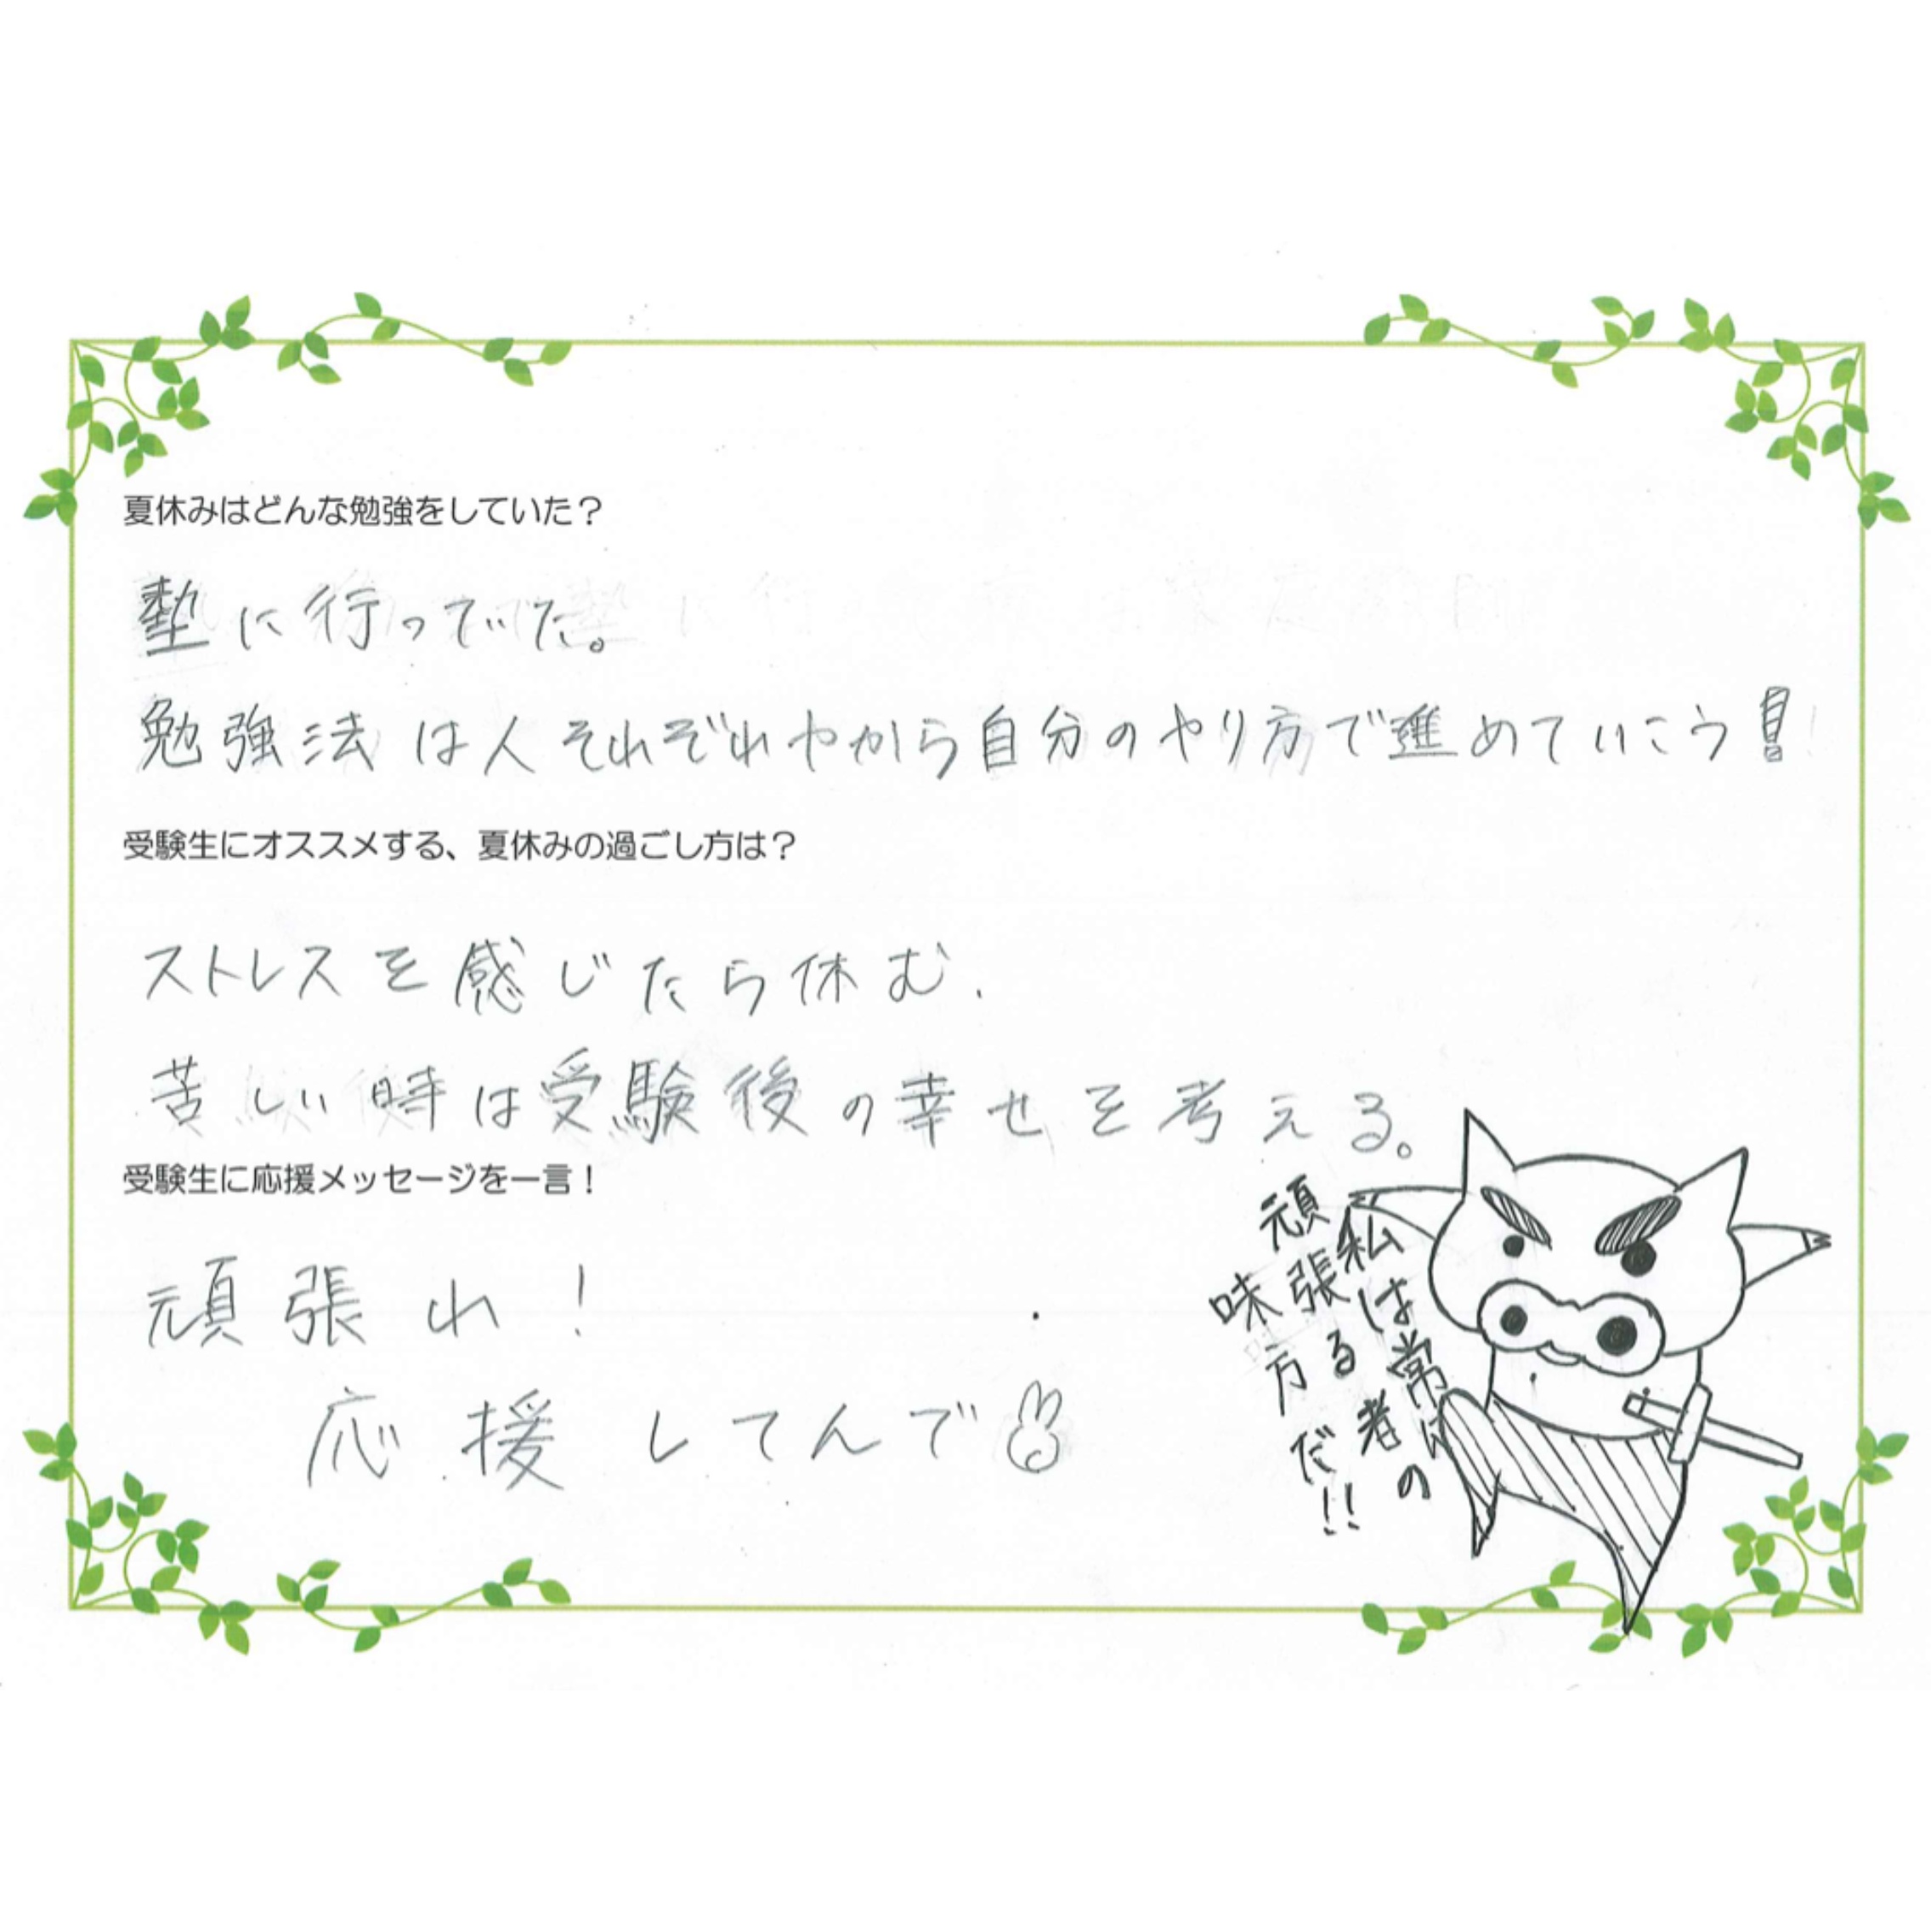 夏休みはどんな勉強をしていた？
塾に行ってた。
勉強法は人それぞれやから自分のやり方で進めていこう！
受験生にオススメする、夏休みの過ごし方は？
ストレスを感じたら休む.
苦しい時は受験後の幸せを考える。
受験生に応援メッセージを一言！
頑張れ！
応援してんで
私は常に
頑張る者の
味方だ!!